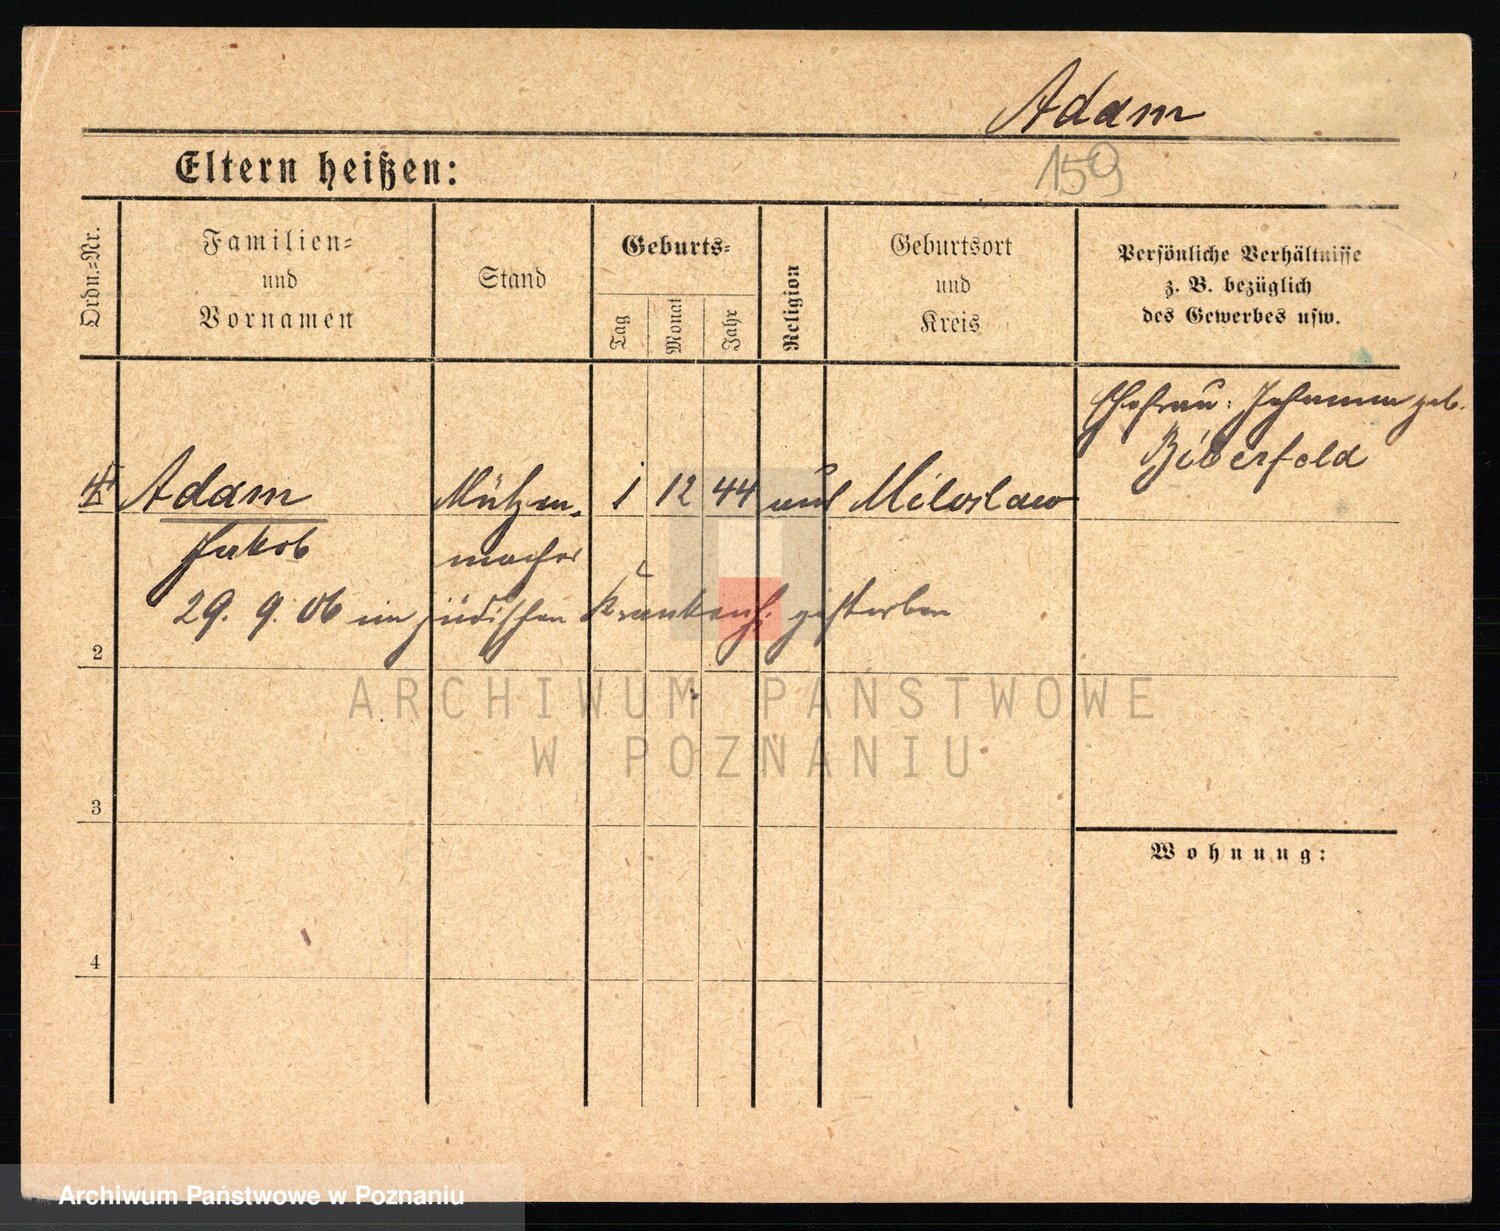 Adam
159
Eltern heißen:
Ordn.-Nr.
Familien-
und
Vornamen
Stand
Geburts-
Tag
Monat
Jahr
Religion
Geburtsort
und
Kreis
Persönliche Verhältnisse
z. B. bezüglich
des Gewerbes usw.
Ehefrau: Johanna geb.
Biberfeld
Adam Mützen- 1 12 44 Miloslaw
Jakob macher
29. 9. 06 im jüdischen Krankenh. gestorben
2
3
4
Wohnung:
ARCHIWUM PAŃSTWOWE
W POZNANIU
Archiwum Państwowe w Poznaniu